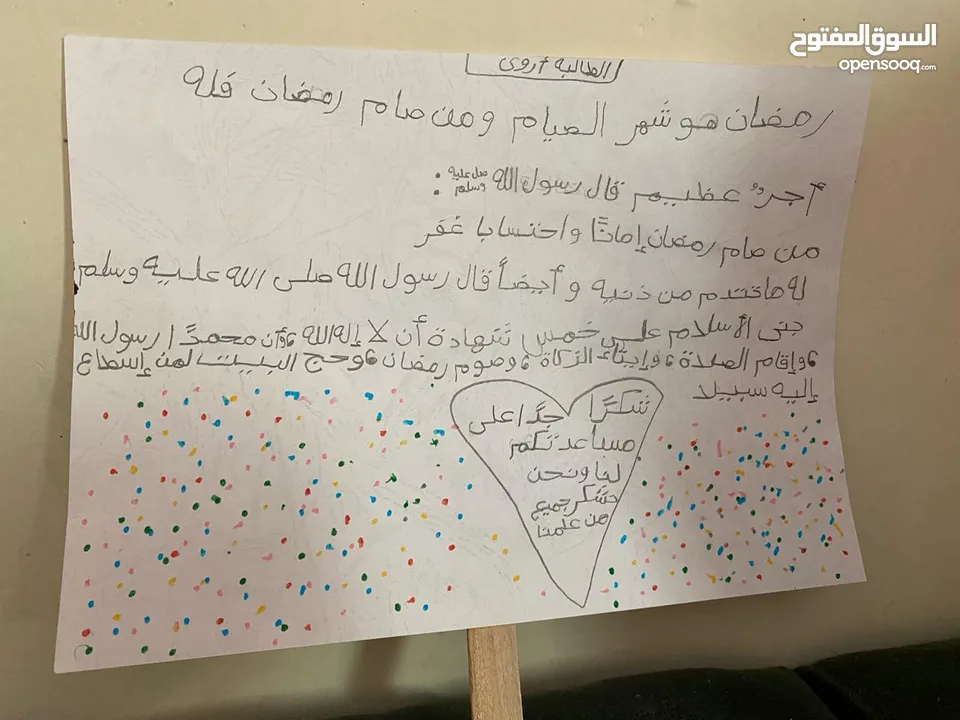 السوق المفتوح
opensooq.com
الطالبة أروى
رمضان هو شهر الصيام ومن صام رمضان فله
أجرٌ عظيم قال رسول الله صلى عليه وسلم :
من صام رمضان إماناً واحتسابا غفر
له ما تقدم من ذنبه وأيضاً قال رسول الله صلى الله عليه وسلم
بنى الأسلام على خمس شهادة أن لا إله الله وأن محمداً رسول الله
وإقام الصلاة وإيتاء الزكاة وصوم رمضان وحج البيت لمن إسطاع
إليه سبيلا
شكرًا جدًا على
مساعدتكم
لنا ونحن
نشكر جميع
من علمنا